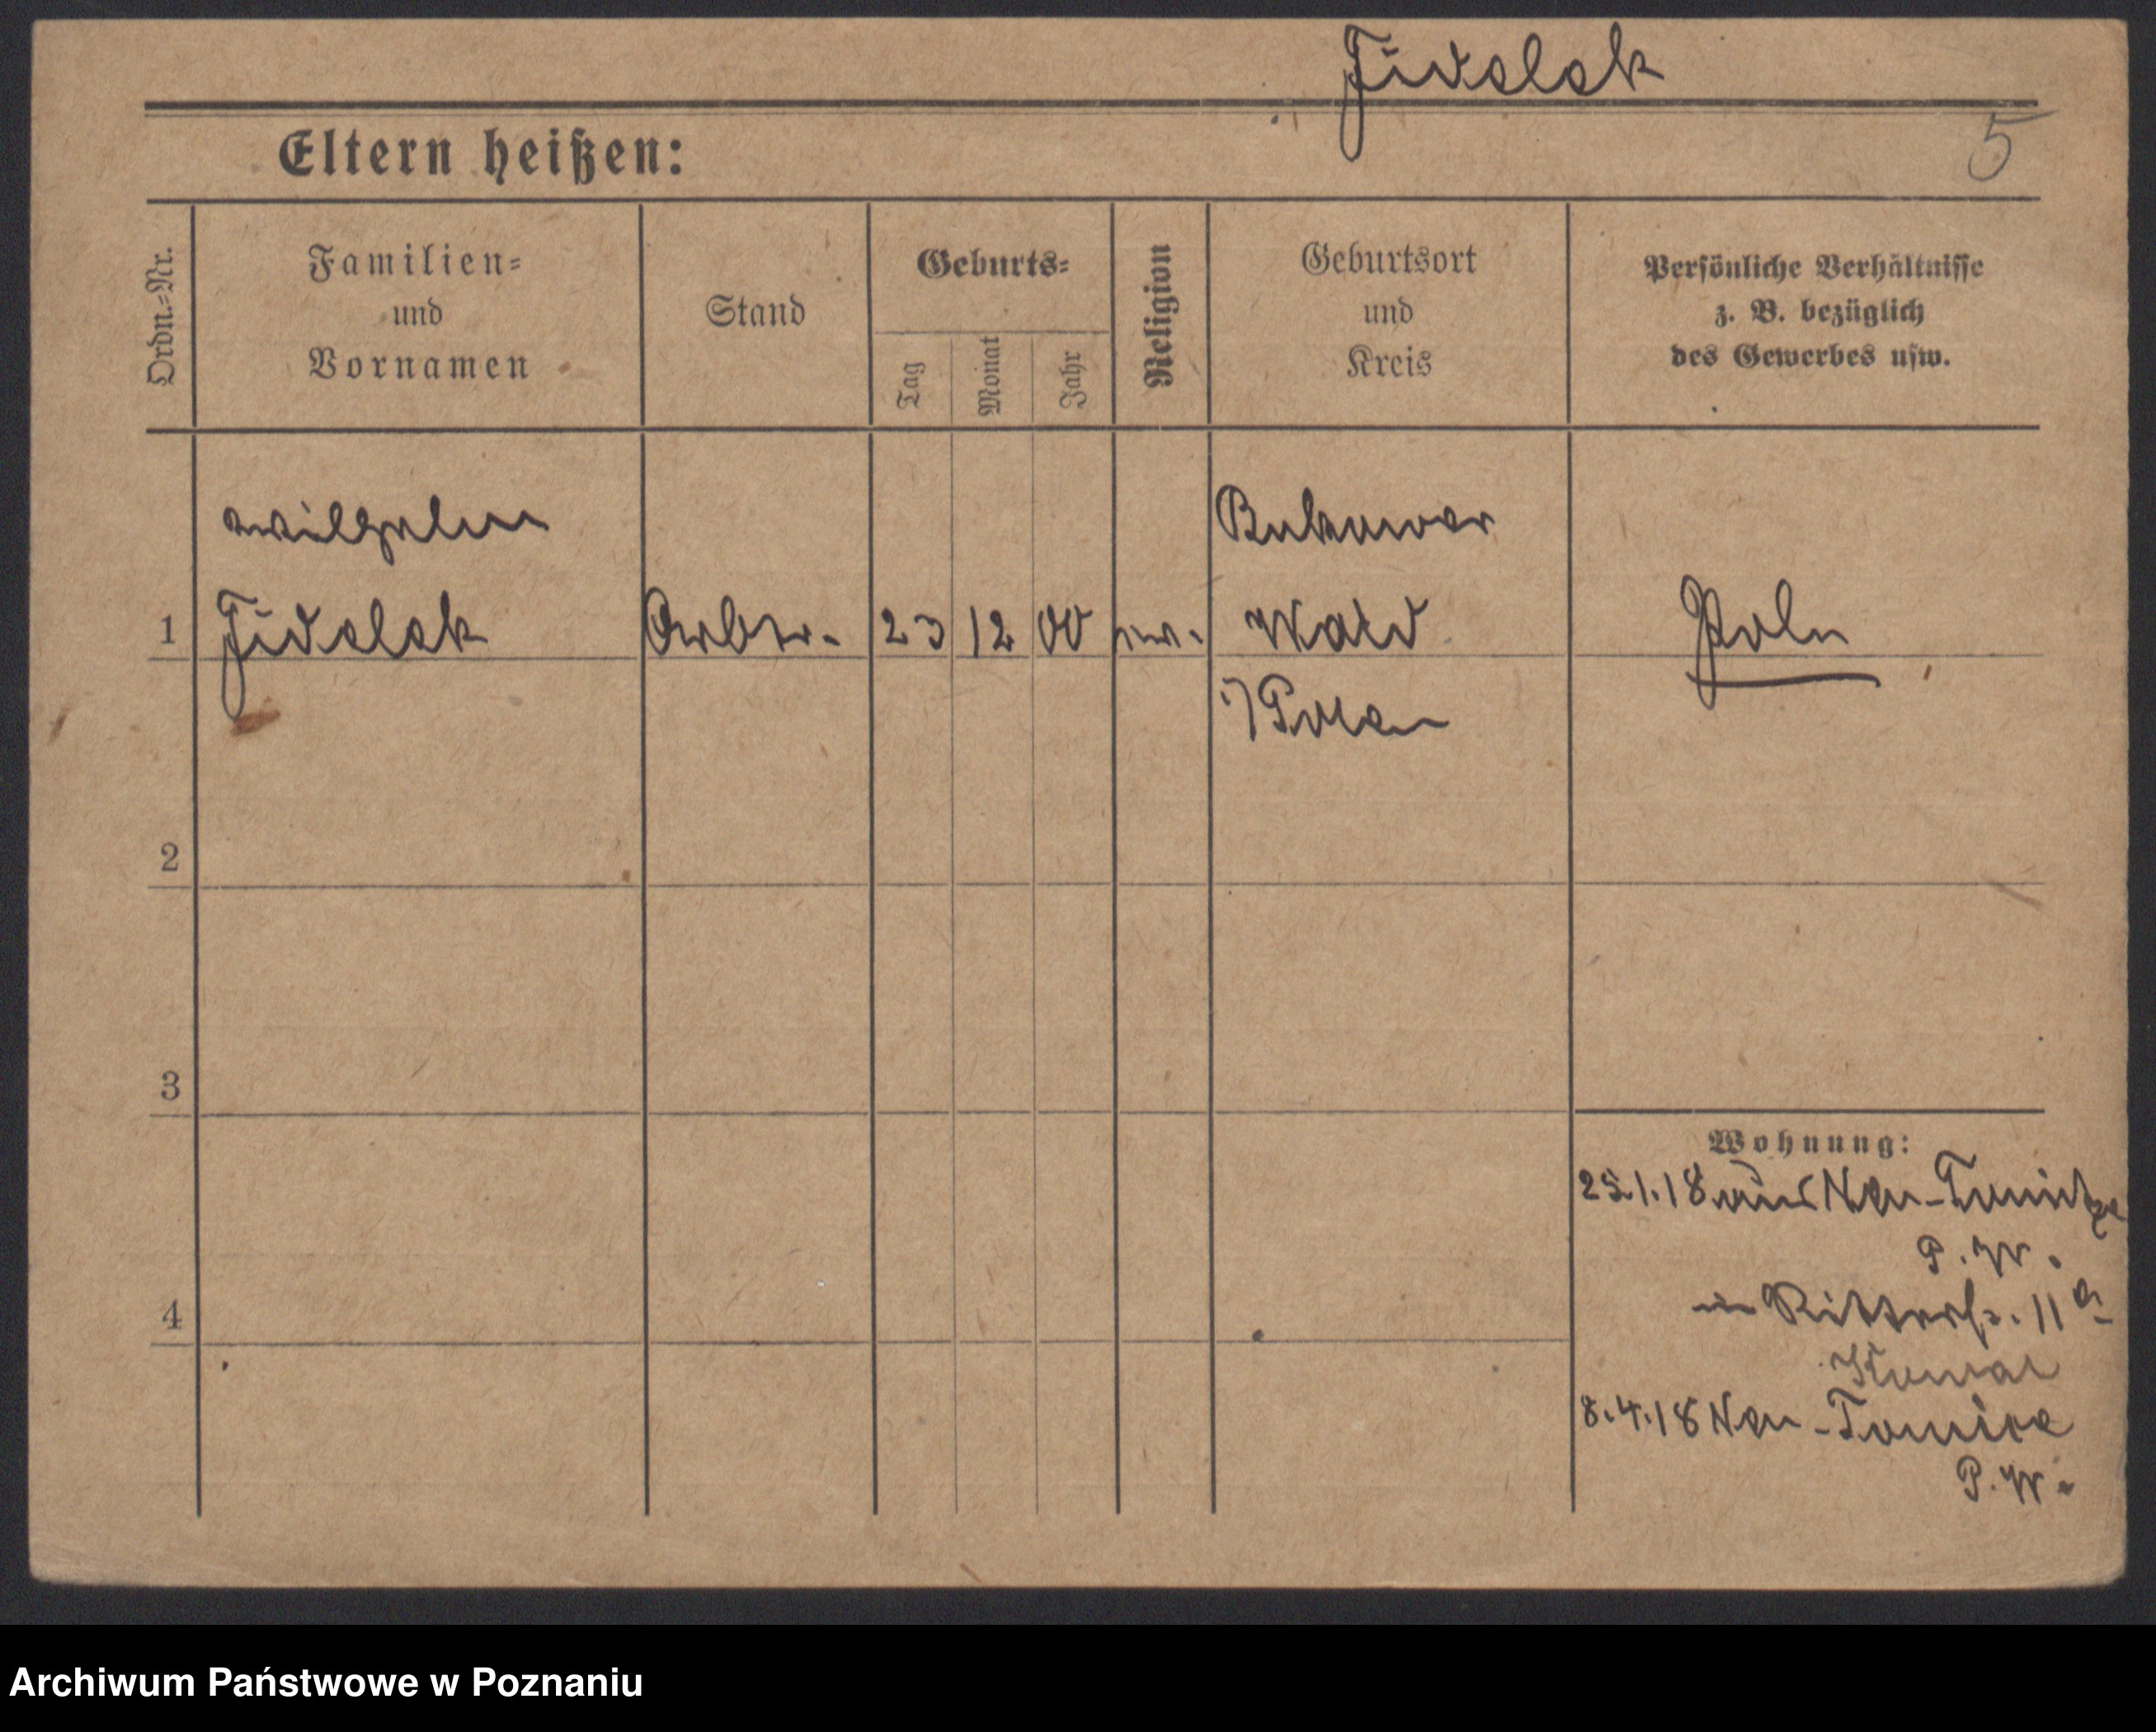 Fidelak
5
Eltern heißen:
Ordn.-Nr.
Familien-
und
Vornamen
Stand
Geburts-
Tag
Monat
Jahr
Religion
Geburtsort
und
Kreis
Persönliche Verhältnisse
z. B. bezüglich
des Gewerbes usw.
Wilhelm
Bukower
1 Fidelak Arbtr. 23 12 00 Wald Poln
i/Polen
2
3
Wohnung:
25.1.18 aus Neu-
P. W.
in Ritterstr. 11a
4
8.4.18 Neu-Tomice
P. W.
Archiwum Państwowe w Poznaniu